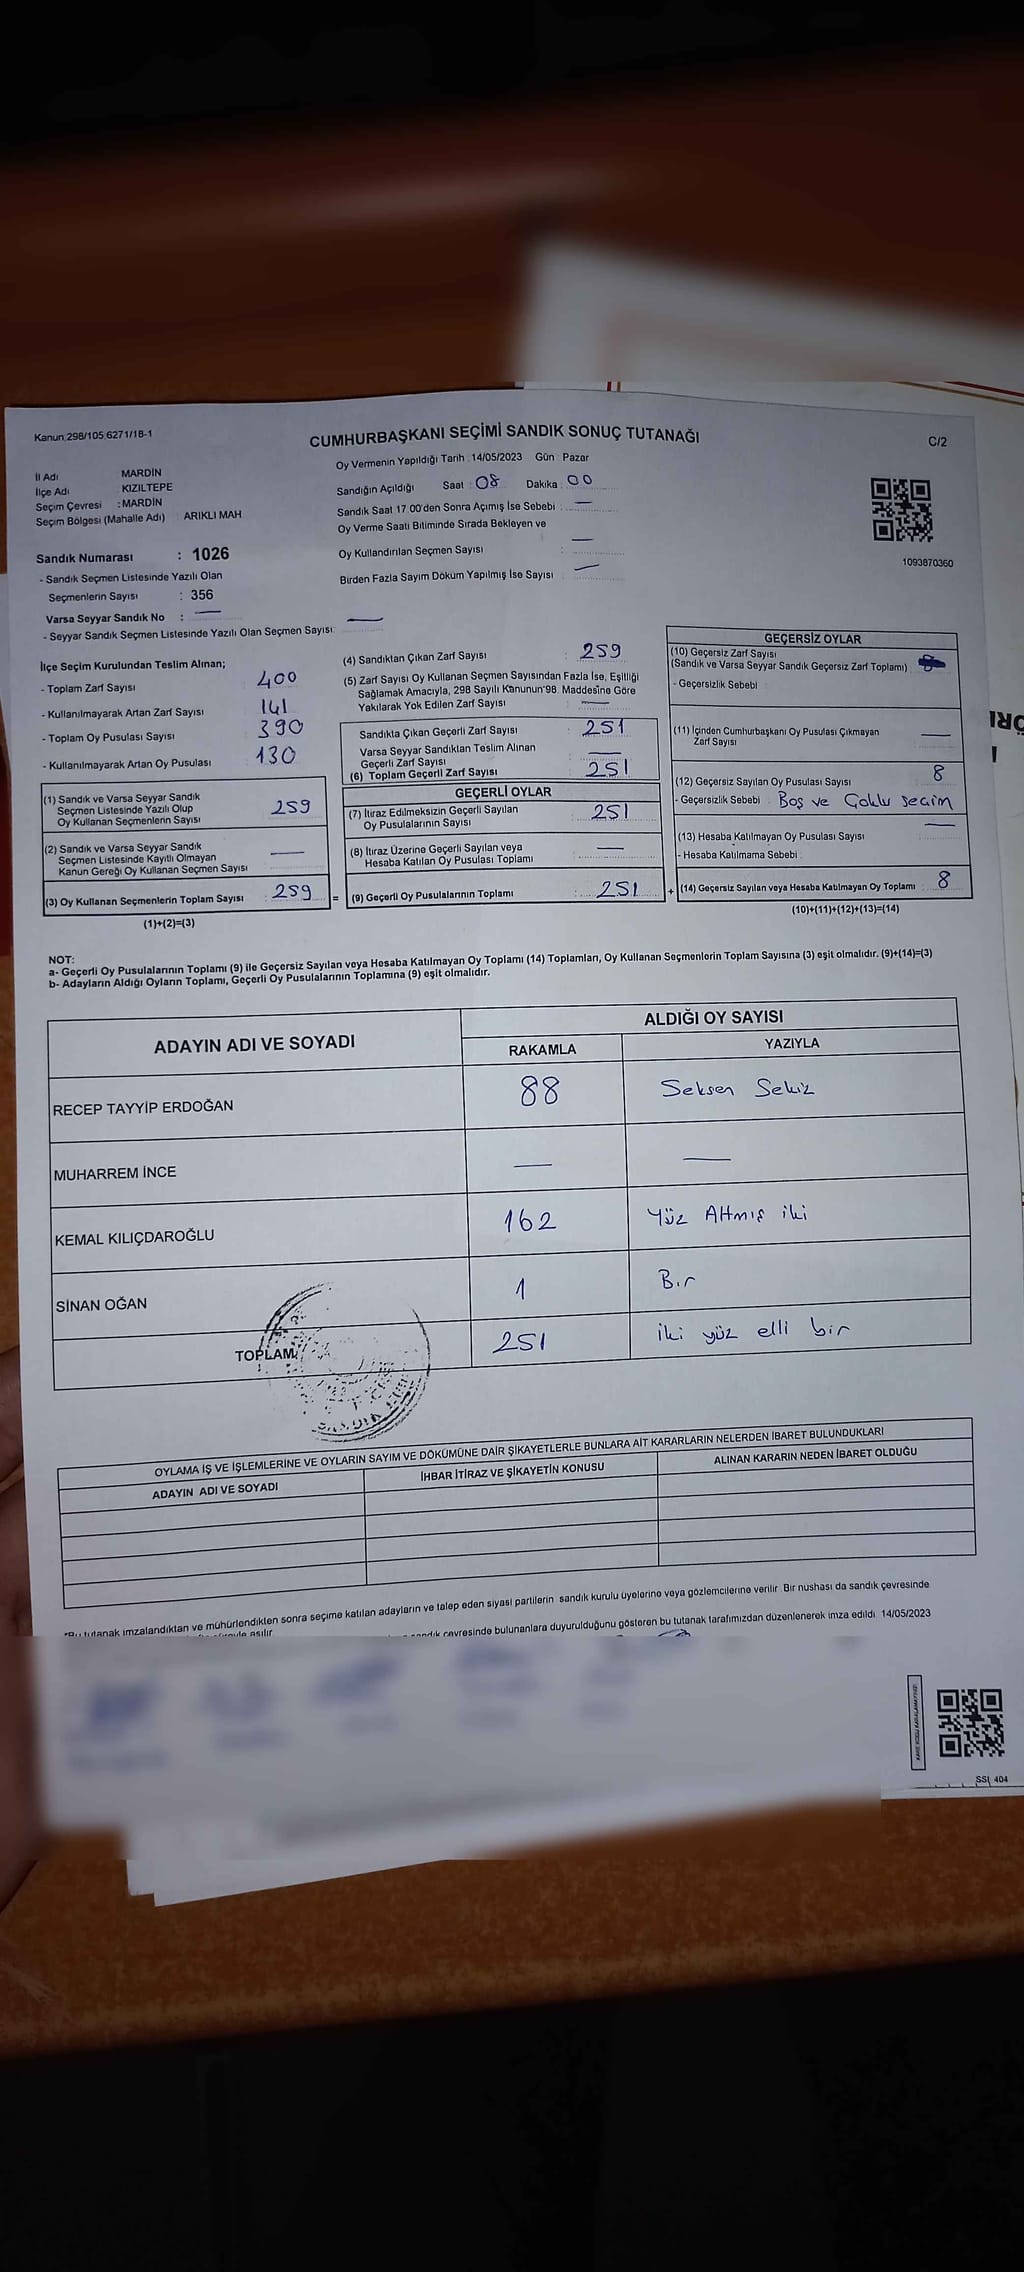 Kanun:298/105;6271/18-1
CUMHURBAŞKANI SEÇİMİ SANDIK SONUÇ TUTANAĞI
C/2
Oy Vermenin Yapıldığı Tarih :14/05/2023 Gün : Pazar
İl Adı MARDİN
İlçe Adı KIZILTEPE
Seçim Çevresi : MARDİN
Seçim Bölgesi (Mahalle Adı) ARIKLI MAH
Sandığın Açıldığı Saat : 08 Dakika : 00
Sandık Saat 17:00'den Sonra Açımış İse Sebebi : —
Oy Verme Saati Bitiminde Sırada Bekleyen ve
Oy Kullandırılan Seçmen Sayısı : —
Birden Fazla Sayım Döküm Yapılmış İse Sayısı : —
1093870360
Sandık Numarası : 1026
- Sandık Seçmen Listesinde Yazılı Olan
Seçmenlerin Sayısı : 356
Varsa Seyyar Sandık No : —
- Seyyar Sandık Seçmen Listesinde Yazılı Olan Seçmen Sayısı: —
İlçe Seçim Kurulundan Teslim Alınan;
- Toplam Zarf Sayısı : 400
- Kullanılmayarak Artan Zarf Sayısı : 141
- Toplam Oy Pusulası Sayısı : 390
- Kullanılmayarak Artan Oy Pusulası : 130
(1) Sandık ve Varsa Seyyar Sandık
Seçmen Listesinde Yazılı Olup
Oy Kullanan Seçmenlerin Sayısı : 259
(2) Sandık ve Varsa Seyyar Sandık
Seçmen Listesinde Kayıtlı Olmayan
Kanun Gereği Oy Kullanan Seçmen Sayısı : —
(3) Oy Kullanan Seçmenlerin Toplam Sayısı : 259 =
(1)+(2)=(3)
(4) Sandıktan Çıkan Zarf Sayısı : 259
(5) Zarf Sayısı Oy Kullanan Seçmen Sayısından Fazla İse, Eşitliği
Sağlamak Amacıyla, 298 Sayılı Kanunun'98. Maddesine Göre
Yakılarak Yok Edilen Zarf Sayısı : —
Sandıkta Çıkan Geçerli Zarf Sayısı : 251
Varsa Seyyar Sandıktan Teslim Alınan
Geçerli Zarf Sayısı : —
(6) Toplam Geçerli Zarf Sayısı : 251
GEÇERLİ OYLAR
(7) İtiraz Edilmeksizin Geçerli Sayılan
Oy Pusulalarının Sayısı : 251
(8) İtiraz Üzerine Geçerli Sayılan veya
Hesaba Katılan Oy Pusulası Toplamı : —
(9) Geçerli Oy Pusulalarının Toplamı : 251 +
GEÇERSİZ OYLAR
(10) Geçersiz Zarf Sayısı
(Sandık ve Varsa Seyyar Sandık Geçersiz Zarf Toplamı) :
- Geçersizlik Sebebi :
(11) İçinden Cumhurbaşkanı Oy Pusulası Çıkmayan
Zarf Sayısı : —
(12) Geçersiz Sayılan Oy Pusulası Sayısı : 8
- Geçersizlik Sebebi : Boş ve Çoklu seçim
(13) Hesaba Katılmayan Oy Pusulası Sayısı : —
- Hesaba Katılmama Sebebi :
(14) Geçersiz Sayılan veya Hesaba Katılmayan Oy Toplamı : 8
(10)+(11)+(12)+(13)=(14)
NOT:
a- Geçerli Oy Pusulalarının Toplamı (9) ile Geçersiz Sayılan veya Hesaba Katılmayan Oy Toplamı (14) Toplamları, Oy Kullanan Seçmenlerin Toplam Sayısına (3) eşit olmalıdır. (9)+(14)=(3)
b- Adayların Aldığı Oyların Toplamı, Geçerli Oy Pusulalarının Toplamına (9) eşit olmalıdır.
ADAYIN ADI VE SOYADI
ALDIĞI OY SAYISI
RAKAMLA YAZIYLA
RECEP TAYYİP ERDOĞAN 88 Seksen Sekiz
MUHARREM İNCE — —
KEMAL KILIÇDAROĞLU 162 Yüz Altmış iki
SİNAN OĞAN 1 Bir
TOPLAM: 251 iki yüz elli bir
OYLAMA İŞ VE İŞLEMLERİNE VE OYLARIN SAYIM VE DÖKÜMÜNE DAİR ŞİKAYETLERLE BUNLARA AİT KARARLARIN NELERDEN İBARET BULUNDUKLARI
ADAYIN ADI VE SOYADI İHBAR İTİRAZ VE ŞİKAYETİN KONUSU ALINAN KARARIN NEDEN İBARET OLDUĞU
*Bu tutanak imzalandıktan ve mühürlendikten sonra seçime katılan adayların ve talep eden siyasi partilerin sandık kurulu üyelerine veya gözlemcilerine verilir. Bir nushası da sandık çevresinde
asılır
sandık çevresinde bulunanlara duyurulduğunu gösteren bu tutanak tarafımızdan düzenlenerek imza edildi. 14/05/2023
SSİ 404